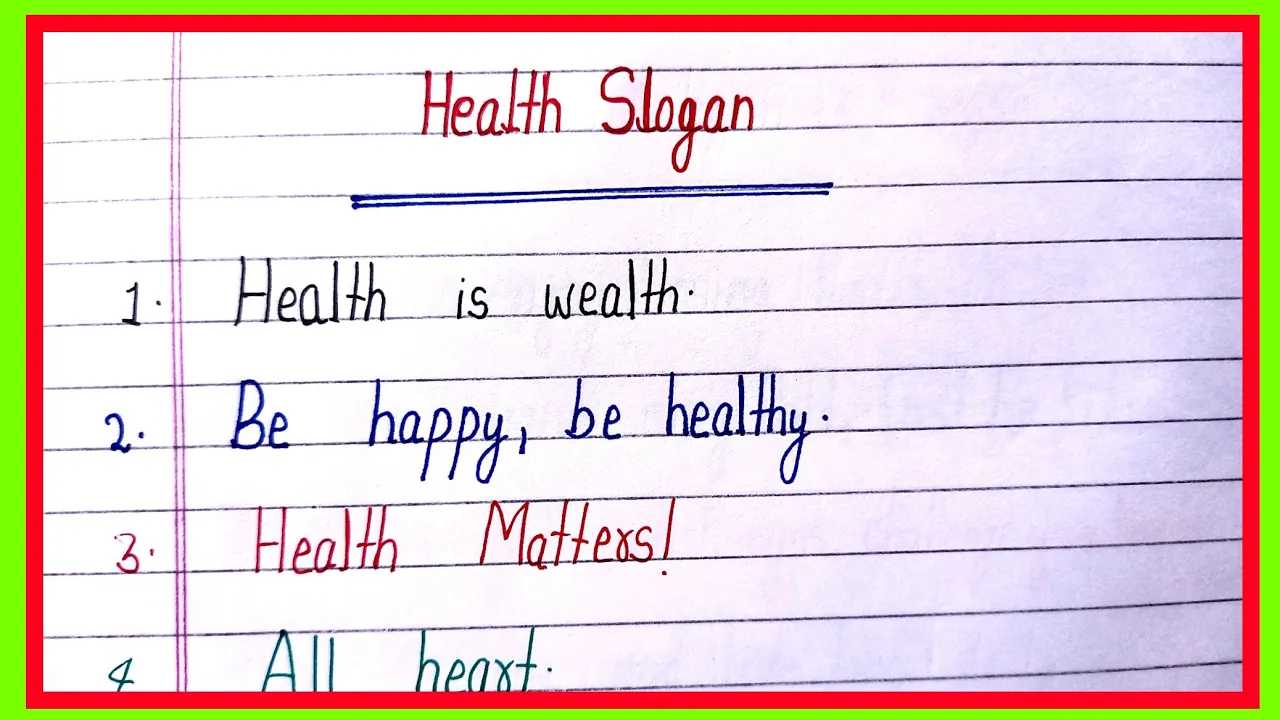 Health Slogan
1. Health is wealth.
2. Be happy, be healthy.
3. Health Matters!
4 All heart.